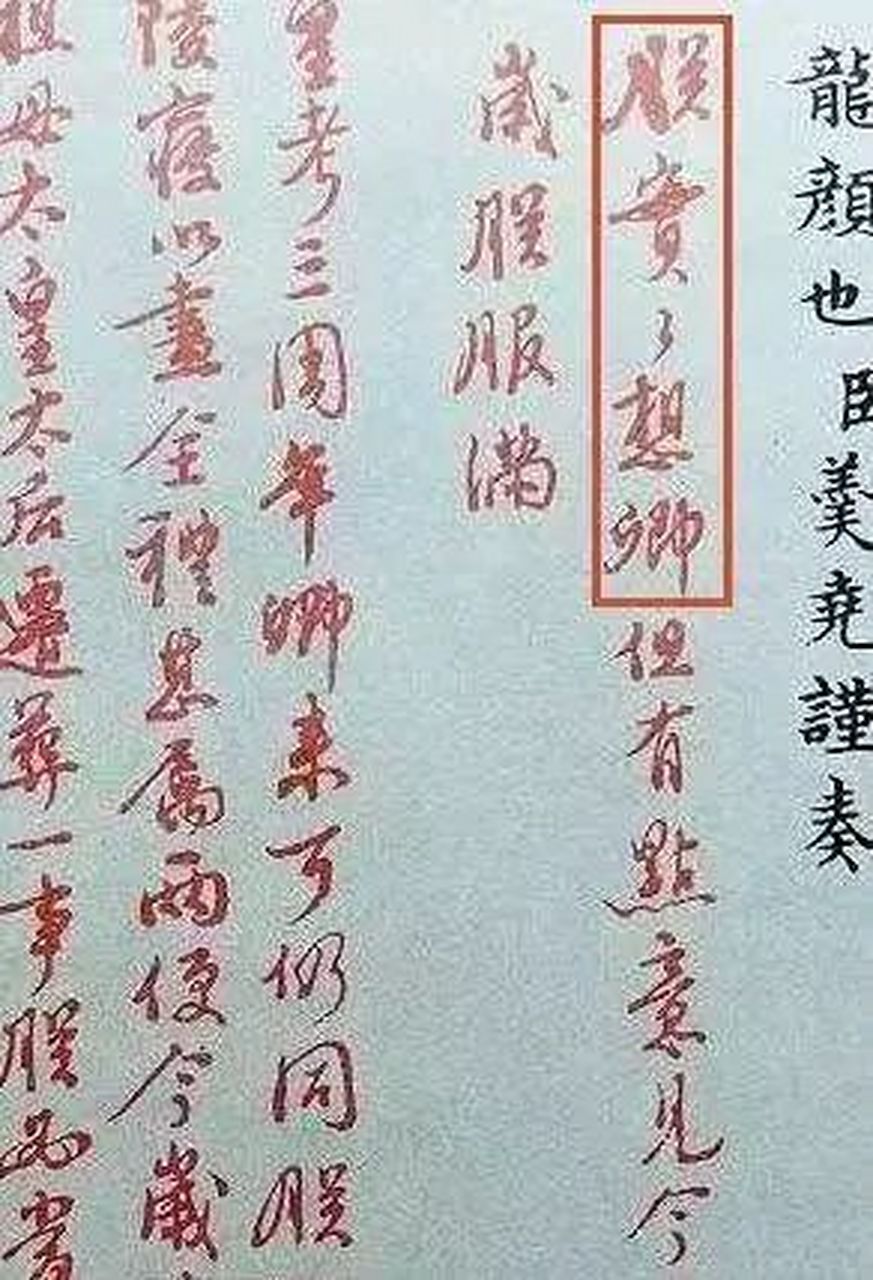 龍顏也臣羹堯謹奏
朕實々想卿但有點意見今
歲朕服滿
皇考三周年卿來可仍同朕
陵寢以盡全禮甚屬兩便今歲
祖母太皇太后遷葬一事朕必當